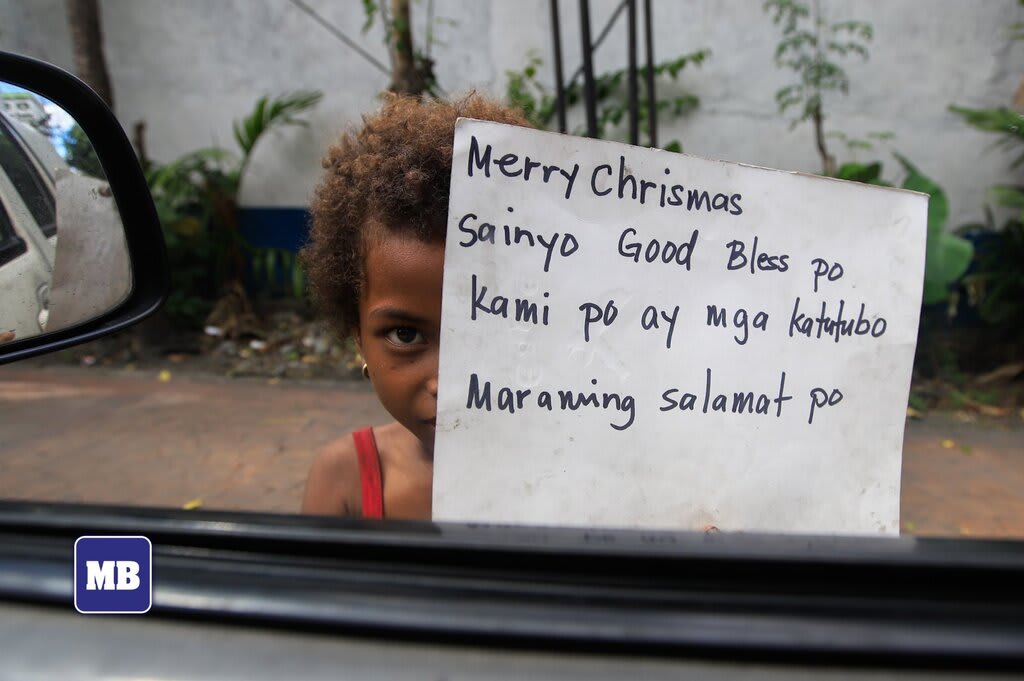 Merry Chrismas
Sainyo Good Bless po
kami po ay mga katutubo
Maraming salamat po
MB